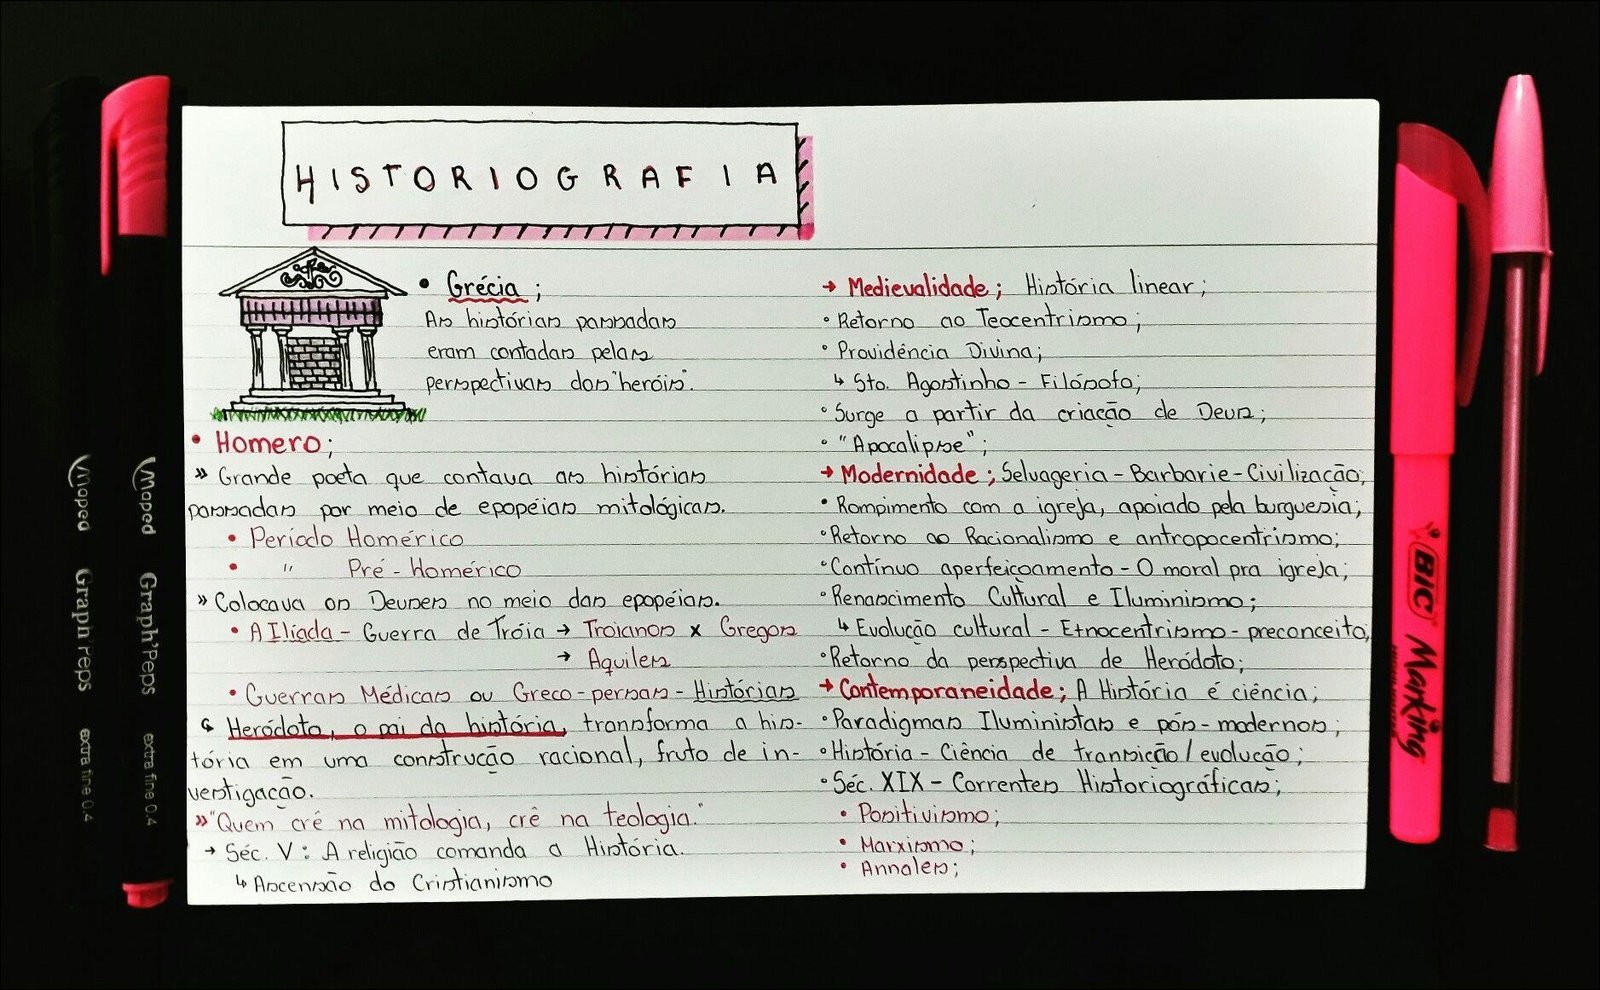 HISTORIOGRAFIA
• Grécia ;
As histórias passadas
eram contadas pelas
perspectivas dos "heróis".
• Homero;
» Grande poeta que contava as histórias
passadas por meio de epopéias mitológicas.
• Período Homérico
• " Pré-Homérico
» Colocava os Deuses no meio das epopéias.
• A Ilíada - Guerra de Tróia → Troianos x Gregos
→ Aquiles
• Guerras Médicas ou Greco-persas - Histórias
↳ Heródoto, o pai da história, transforma a his-
tória em uma construção racional, fruto de in-
vestigação.
» "Quem crê na mitologia, crê na teologia."
→ Séc. V: A religião comanda a História.
↳ Ascensão do Cristianismo
→ Medievalidade; História linear;
° Retorno ao Teocentrismo;
° Providência Divina;
↳ Sto. Agostinho - Filósofo;
° Surge a partir da criação de Deus;
° "Apocalipse";
→ Modernidade; Selvageria - Barbarie - Civilização;
• Rompimento com a igreja, apoiado pela burguesia;
° Retorno ao Racionalismo e antropocentrismo;
° Contínuo aperfeiçoamento - O moral pra igreja;
° Renascimento Cultural e Iluminismo;
↳ Evolução cultural - Etnocentrismo - preconceito;
° Retorno da perspectiva de Heródoto;
→ Contemporaneidade; A História é ciência;
° Paradigmas Iluministas e pós-modernos;
° História - Ciência de transição/evolução;
° Séc. XIX - Correntes Historiográficas;
• Positivismo;
• Marxismo;
• Annales;
Maped Graph'Peps extra fine 0.4
Maped Graph'Peps extra fine 0.4
BIC Marking